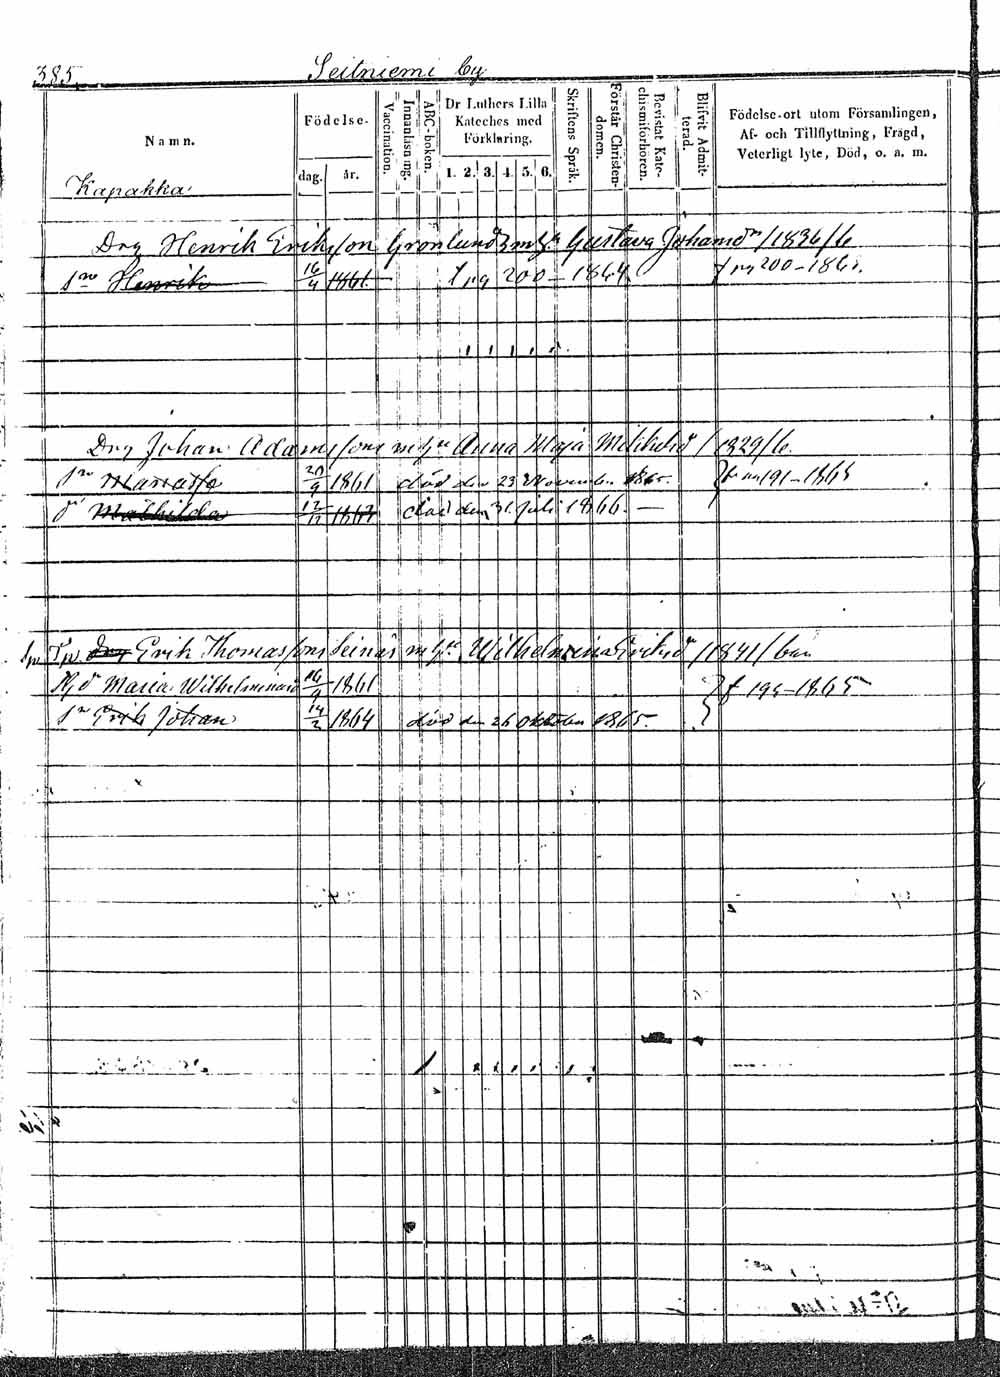 385.
Seitniemi by
Namn.
Födelse-
dag. år.
Vaccination.
Innanläsning.
ABC-boken.
Dr Luthers Lilla
Kateches med
Förklaring.
1. 2. 3. 4. 5. 6.
Skriftens Språk.
Förstår Christen-
domen.
Bevistat Kate-
chismiförhören.
Blifvit Admit-
terad.
Födelse-ort utom Församlingen,
Af- och Tillflyttning, Frägd,
Veterligt lyte, Död, o. a. m.
Kapakka
Drg Henrik Eriksson Grönlund m hu Gustava Johansdr / 1836/6
sn Henrik 16/4 1861 200 - 1864 200 - 186
Drg Johan Adamssons m hu Anna Maja Mickelsd / 1829/6
sn 20/9 1861 död den 23 November 1865. 191 - 1865
dr Mathilda död den 31 Juli 1866. —
Drg Erik Thomassons Seinäs m hu Wilhelmina Eriksd / 1841/
dr Maria Wilhelmina 16/9 1861 195 - 1865
sn Erik Johan 14/2 1864 död den 26 Oktober 1865.